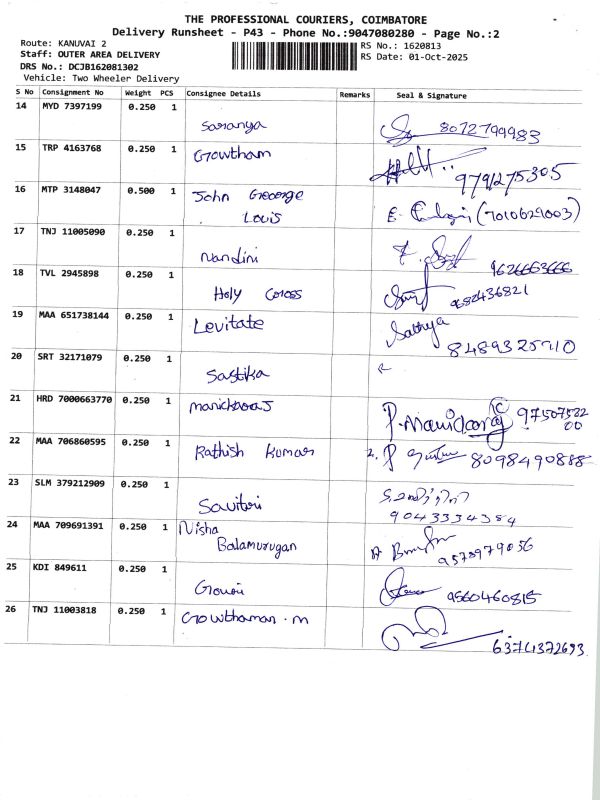 THE PROFESSIONAL COURIERS, COIMBATORE
Delivery Runsheet - P43 - Phone No.:9047080280 - Page No.:2
Route: KANUVAI 2
RS No.: 1620813
Staff: OUTER AREA DELIVERY
RS Date: 01-Oct-2025
DRS No.: DCJB162081302
Vehicle: Two Wheeler Delivery
S No Consignment No Weight PCS Consignee Details Remarks Seal & Signature
14 MYD 7397199 0.250 1 Saranya 8072799983
15 TRP 4163768 0.250 1 Gowtham 9791275305
16 MTP 3148047 0.500 1 John Greorge
Louis (7010629003)
17 TNJ 11005090 0.250 1 Nandini 9626663666
18 TVL 2945898 0.250 1 Holy Coross 9682436821
19 MAA 651738144 0.250 1 Levitate Sathya
8489325710
20 SRT 32171079 0.250 1 Sastika
21 HRD 7000663770 0.250 1 97507522
00
22 MAA 706860595 0.250 1 Rathish Kumar 8098490888
23 SLM 379212909 0.250 1 Savitri
9043334384
24 MAA 709691391 0.250 1 Nisha
Balamurugan 9578979036
25 KDI 849611 0.250 1 Gowri 9560460815
26 TNJ 11003818 0.250 1 Gowthaman.M
6374372693